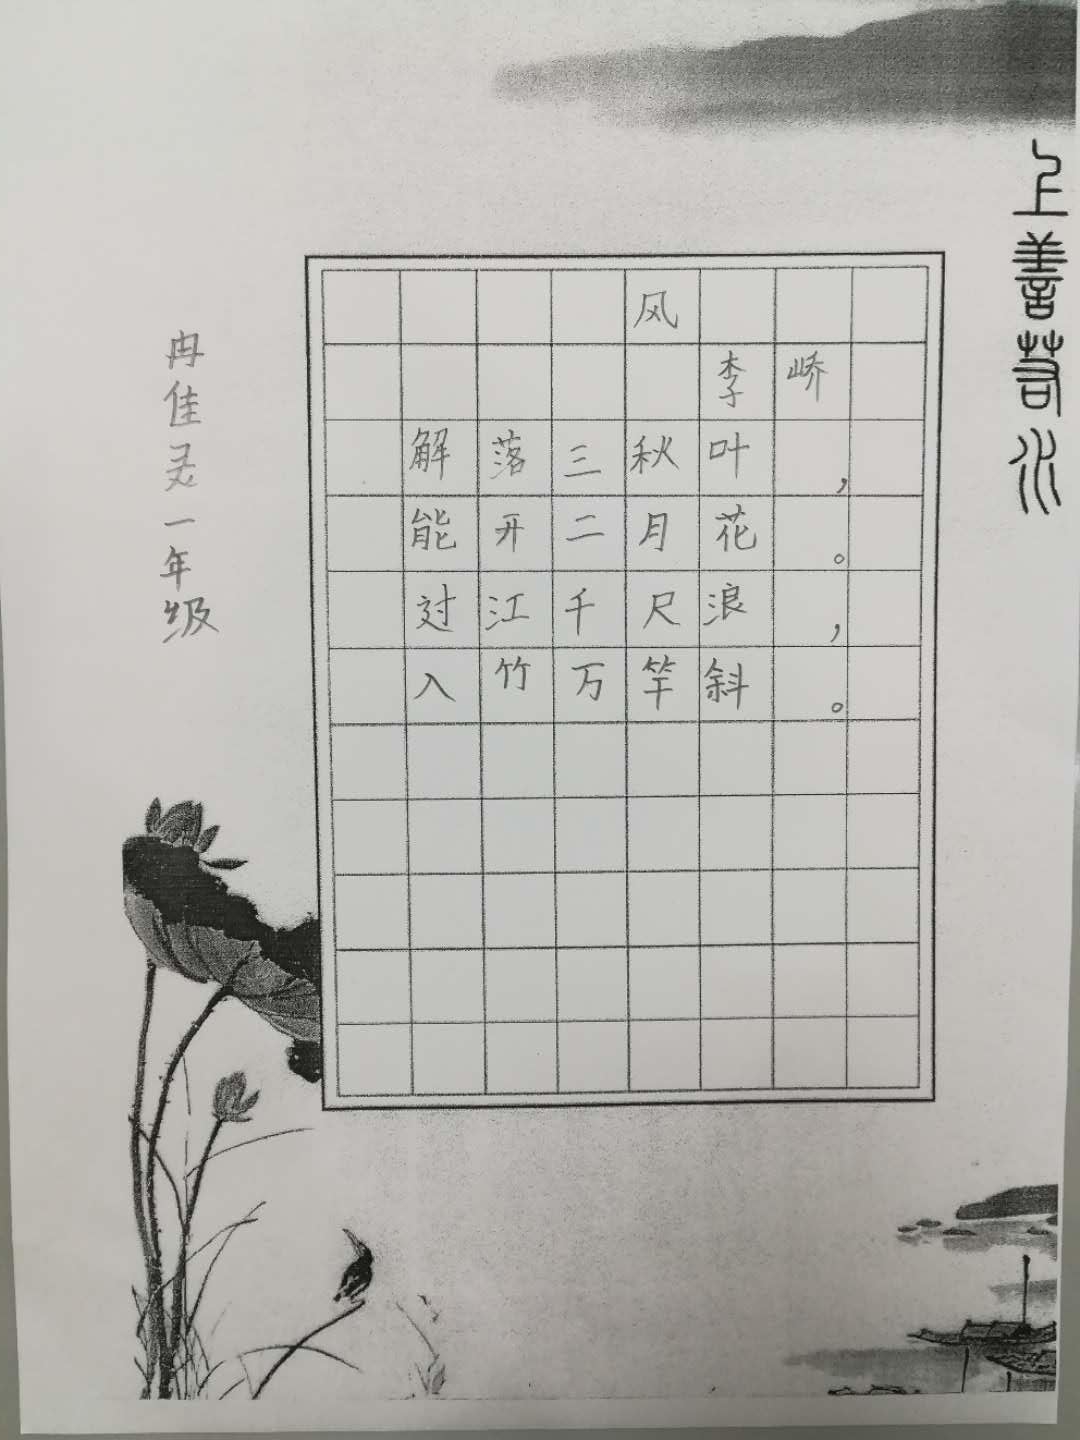 上善若水
风
李峤
解落三秋叶，
能开二月花。
过江千尺浪，
入竹万竿斜。
冉佳灵一年级